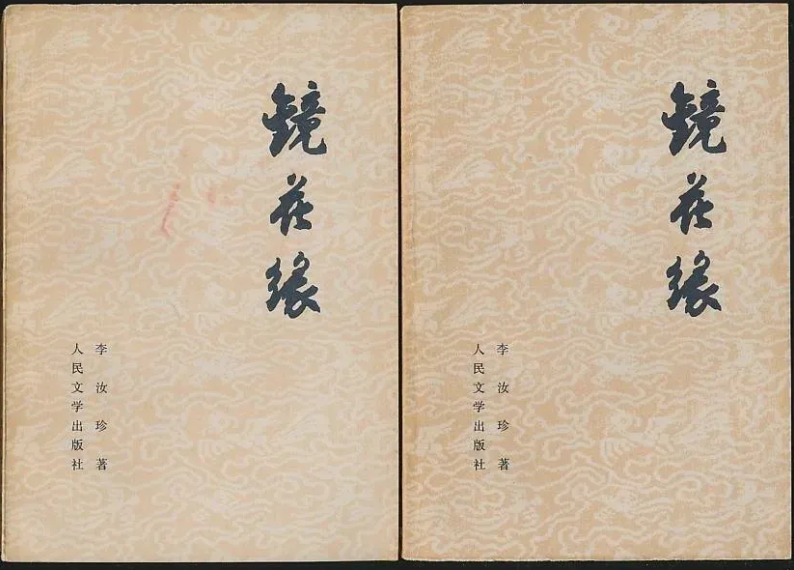 鏡花緣
李汝珍 著
人民文学出版社
鏡花緣
李汝珍 著
人民文学出版社